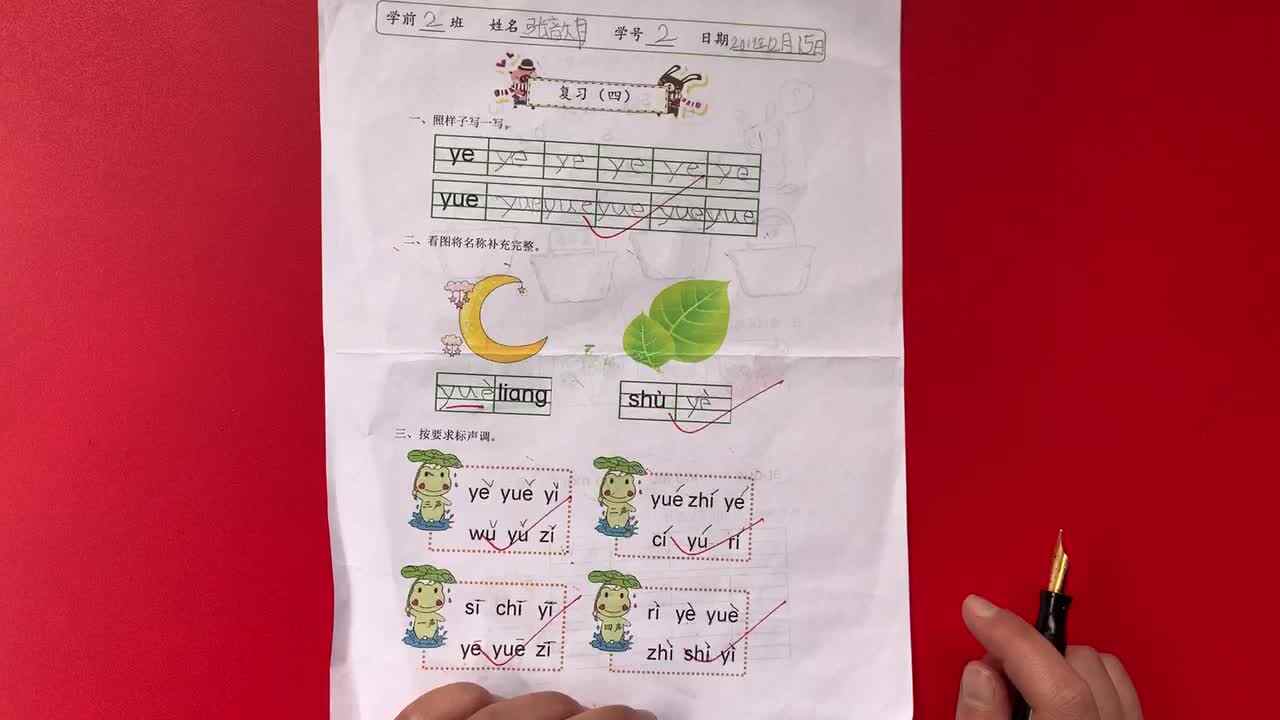 学前 2 班 姓名 学号 2 日期 12月15日
复习（四）
一、照样子写一写。
ye ye ye ye ye ye
yue yue yue yue yue yue
二、看图将名称补充完整。
yuè liang
shù yè
三、按要求标声调。
三声
yě yuě yǐ
wǔ yǔ zǐ
二声
yué zhí yé
cí yú rí
一声
sī chī yī
yē yuē zī
四声
rì yè yuè
zhì shì yì